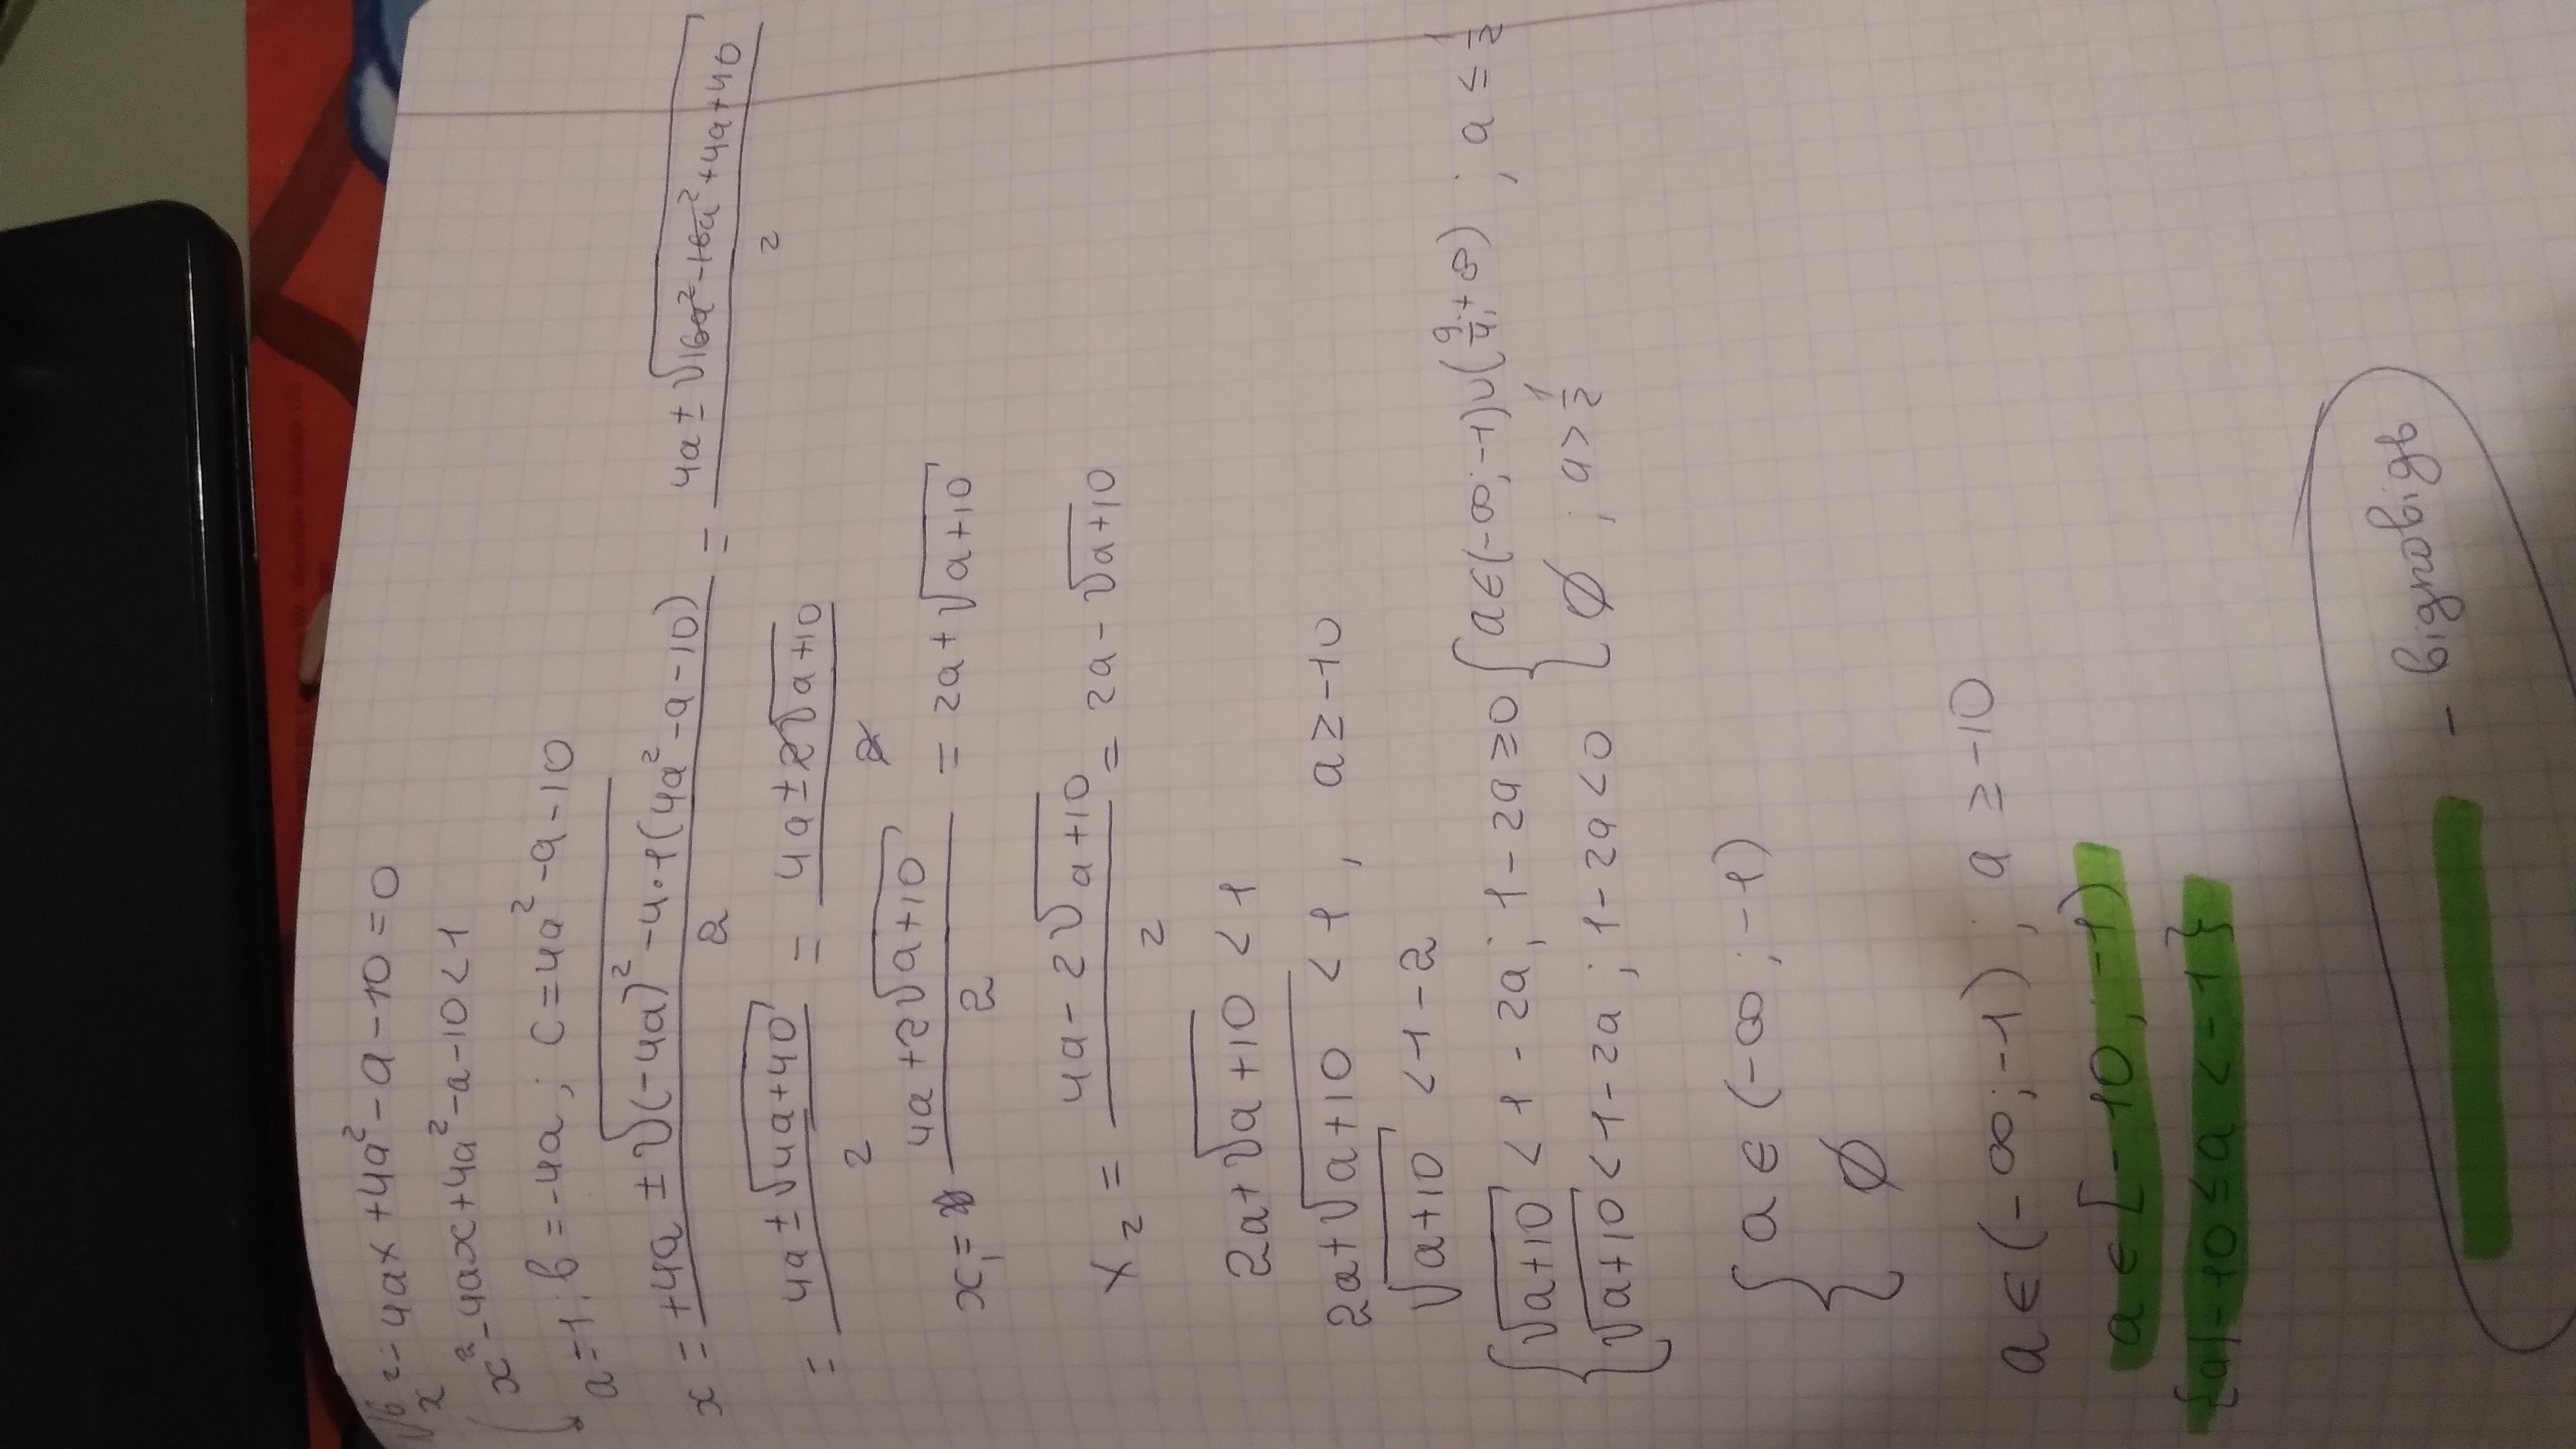 №6 x² - 4ax + 4a² - a - 10 = 0
{ x² - 4ax + 4a² - a - 10 < 1
a = 1; b = -4a; c = 4a² - a - 10
x = (+4a ± √((-4a)² - 4·1(4a² - a - 10)))/2 = (4a ± √(16a² - 16a² + 4a + 40))/2
= (4a ± √(4a+40))/2 = (4a ± 2√(a+10))/2
x₁ = (4a + 2√(a+10))/2 = 2a + √(a+10)
x₂ = (4a - 2√(a+10))/2 = 2a - √(a+10)
2a + √(a+10) < 1
2a + √(a+10) < 1, a ≥ -10
√(a+10) < 1 - 2
{ √(a+10) < 1 - 2a; 1 - 2a ≥ 0 { a ∈ (-∞; -1) ∪ (9/4; +∞); a ≤ 1/2
√(a+10) < 1 - 2a; 1 - 2a < 0 ∅; a > 1/2
{ a ∈ (-∞; -1)
∅
a ∈ (-∞; -1); a ≥ -10
a ∈ [-10; -1)
{a | -10 ≤ a < -1}
- відповідь